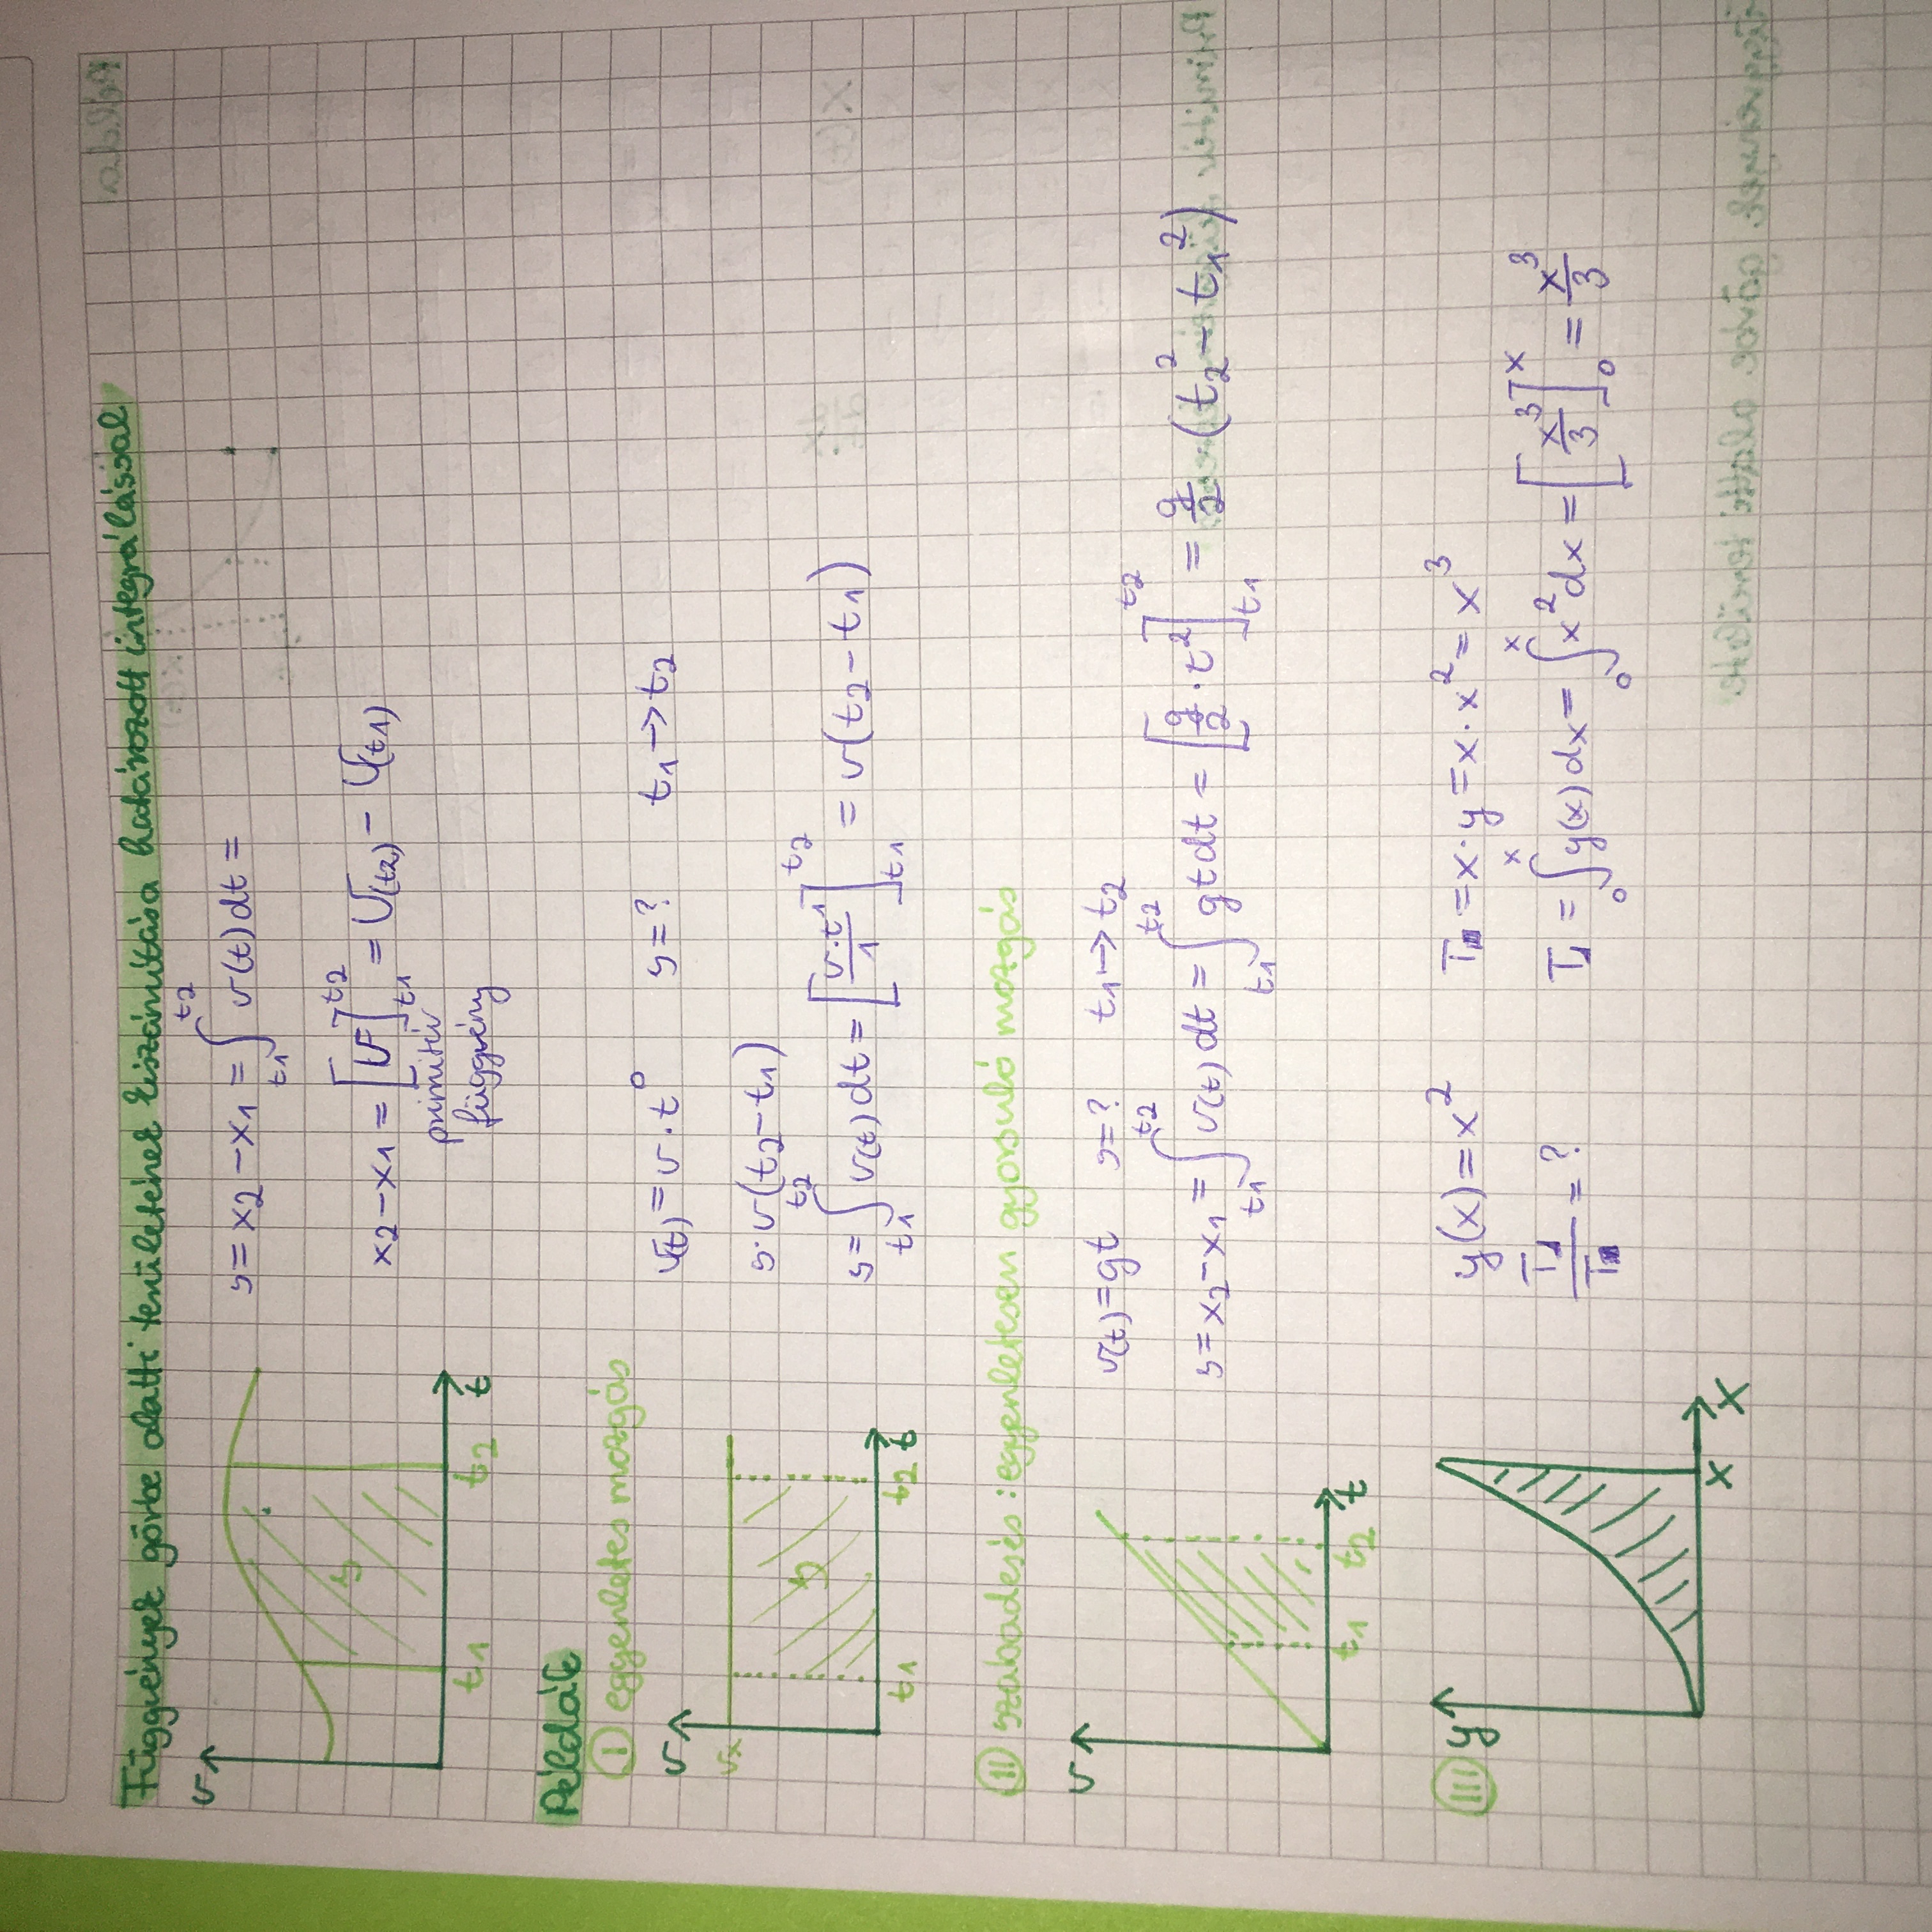 Függvények görbe alatti területének kiszámítása határozott integrálással
v
s
t1 t2 t
s = x2 - x1 = ∫_{t1}^{t2} v(t) dt =
x2 - x1 = [V]_{t1}^{t2} = V(t2) - V(t1)
primitív
függvény
Példák
I egyenletes mozgás
v
vx
s
t1 t2 t
v(t) = v · t^0 s = ? t1 → t2
s · v(t2 - t1)
s = ∫_{t1}^{t2} v(t) dt = [v · t^1 / 1]_{t1}^{t2} = v(t2 - t1)
II szabadesés: egyenletesen gyorsuló mozgás
v
t1 t2 t
v(t) = gt s = ? t1 → t2
s = x2 - x1 = ∫_{t1}^{t2} v(t) dt = ∫_{t1}^{t2} gt dt = [g/2 · t^2]_{t1}^{t2} = g/2 (t2^2 - t1^2)
III y
x x
y(x) = x^2 T■ = x · y = x · x^2 = x^3
T◢ / T■ = ? T◢ = ∫_0^x y(x) dx = ∫_0^x x^2 dx = [x^3/3]_0^x = x^3/3